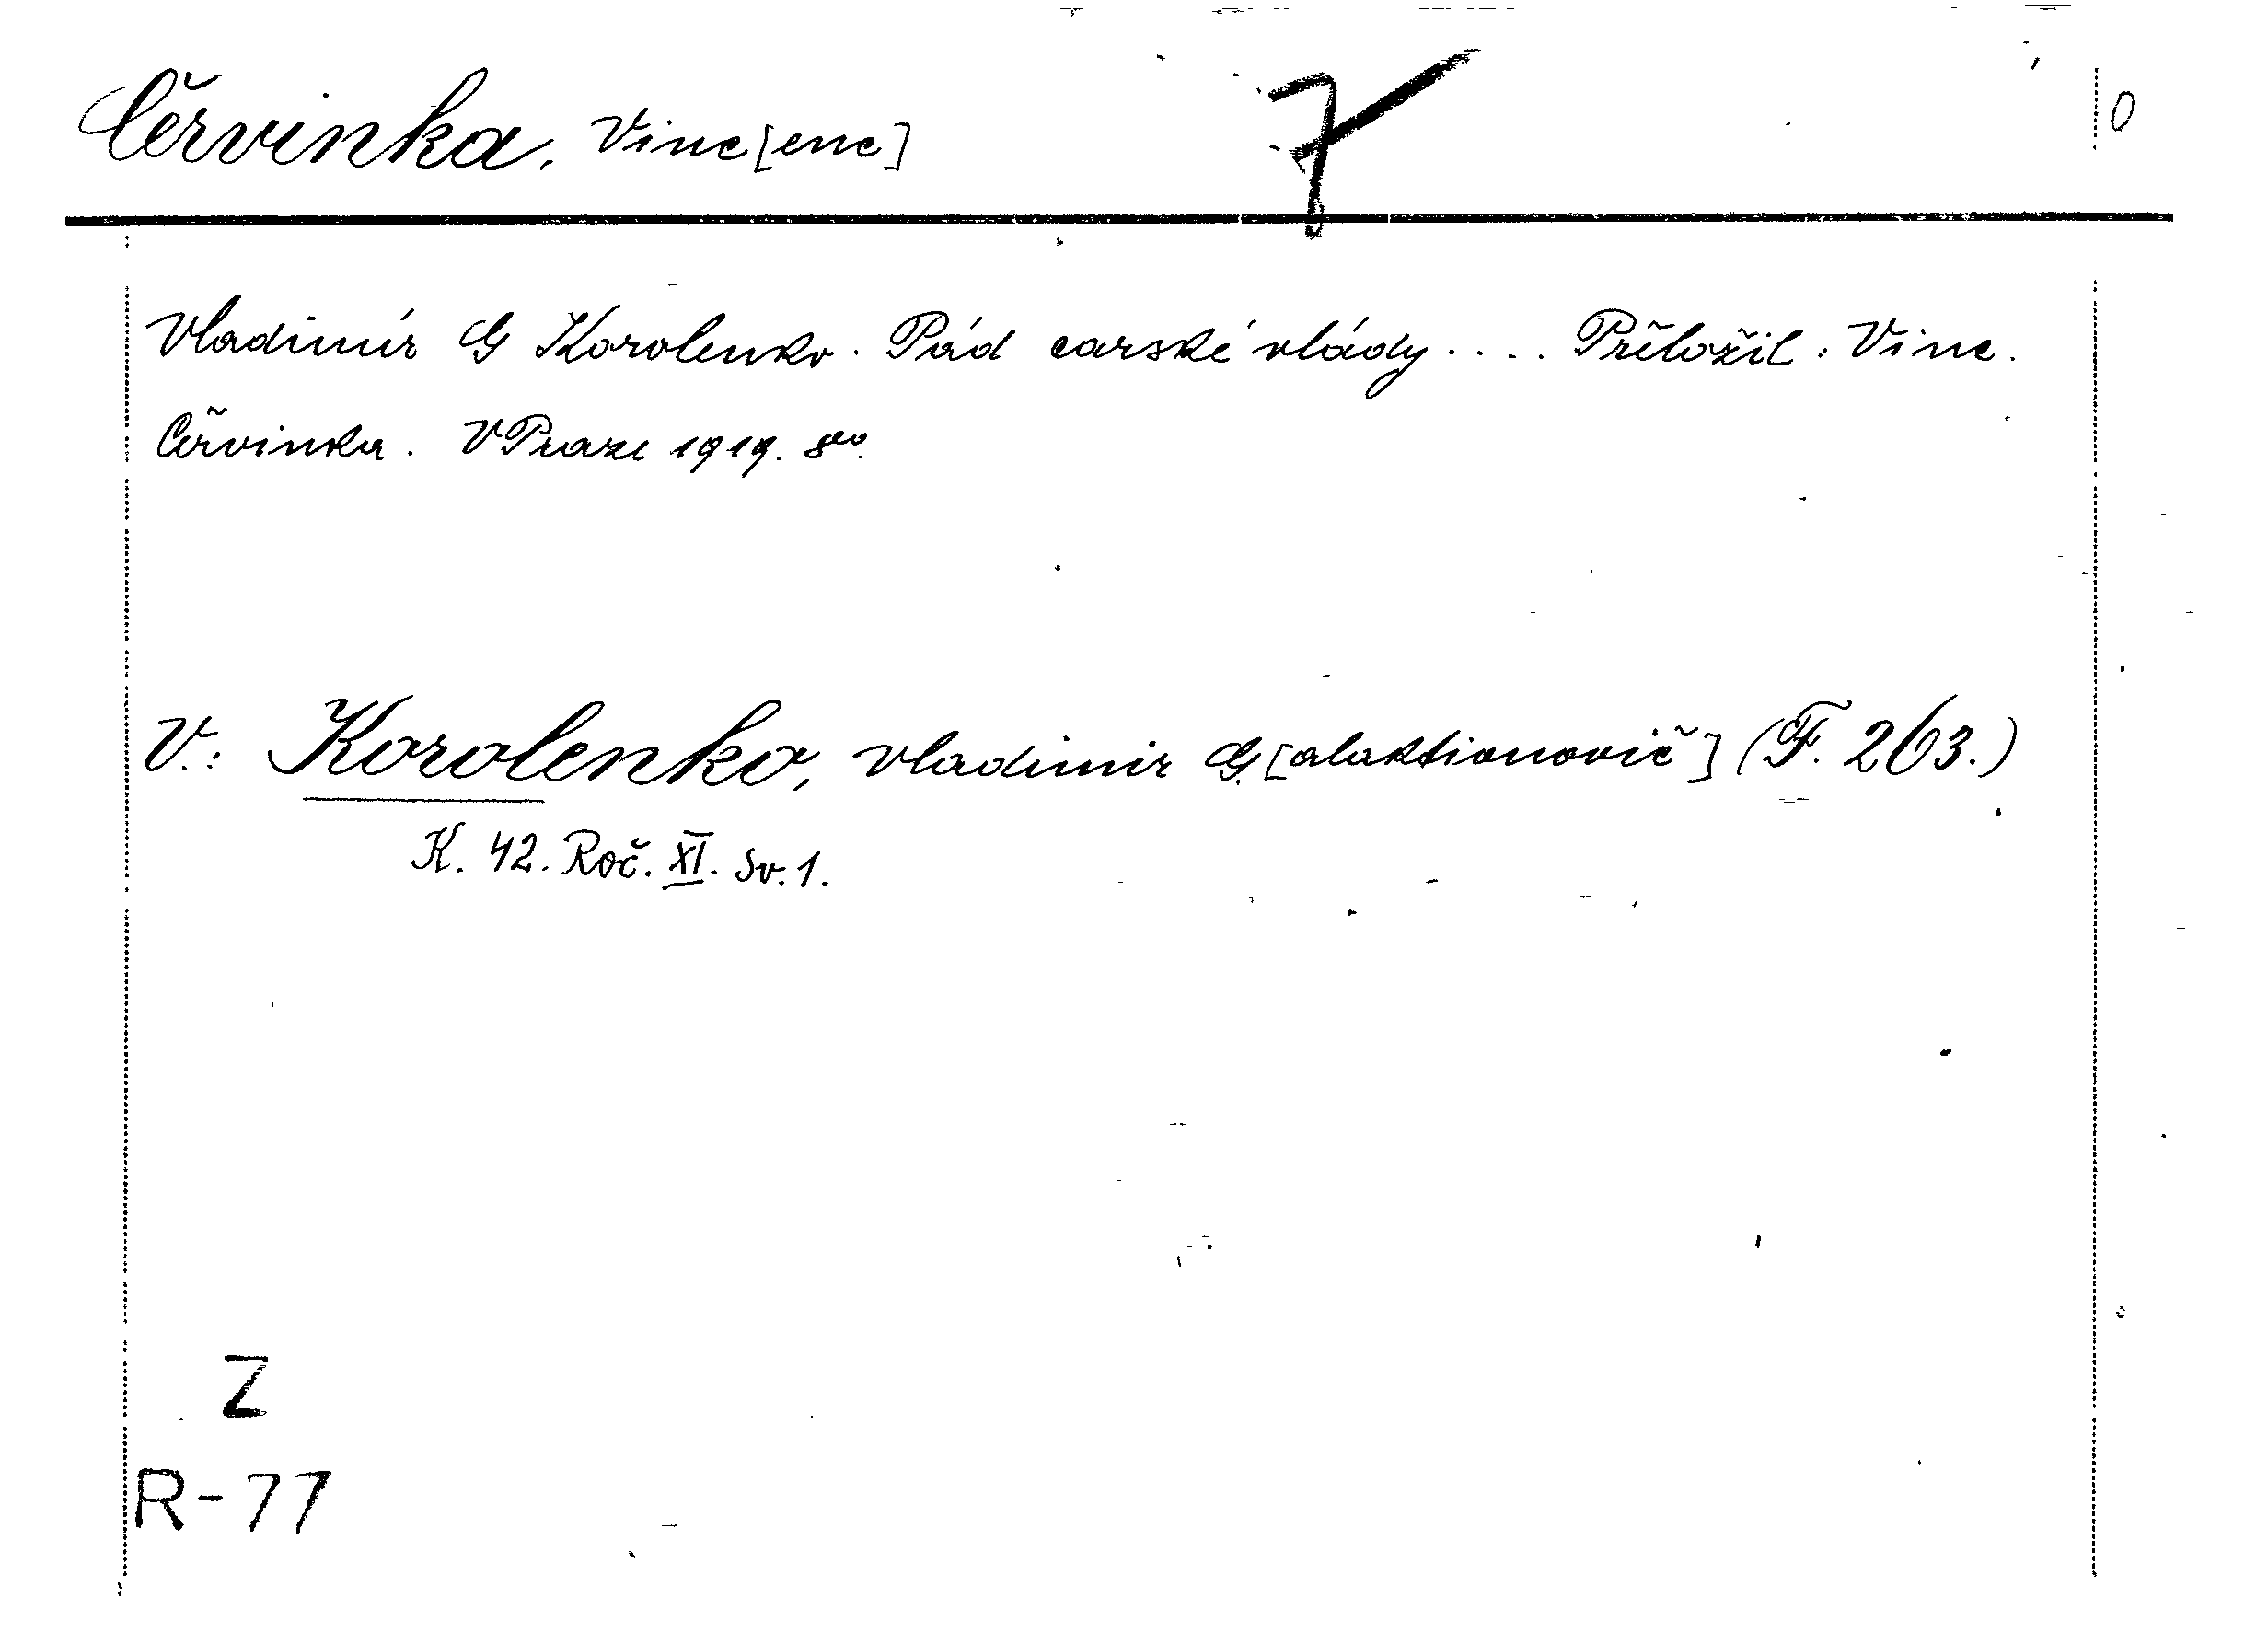 Červinka, Vinc[enc] 7 0
Vladimír G Korolenko. Pád carské vlády.... Přeložil: Vinc.
Červinka. V Praze 1919. 8vo.
V.: Korolenko, Vladimir G.[alaktionovič] (F. 263.)
K. 42. Roč. XI. Sv. 1.
Z
R-77